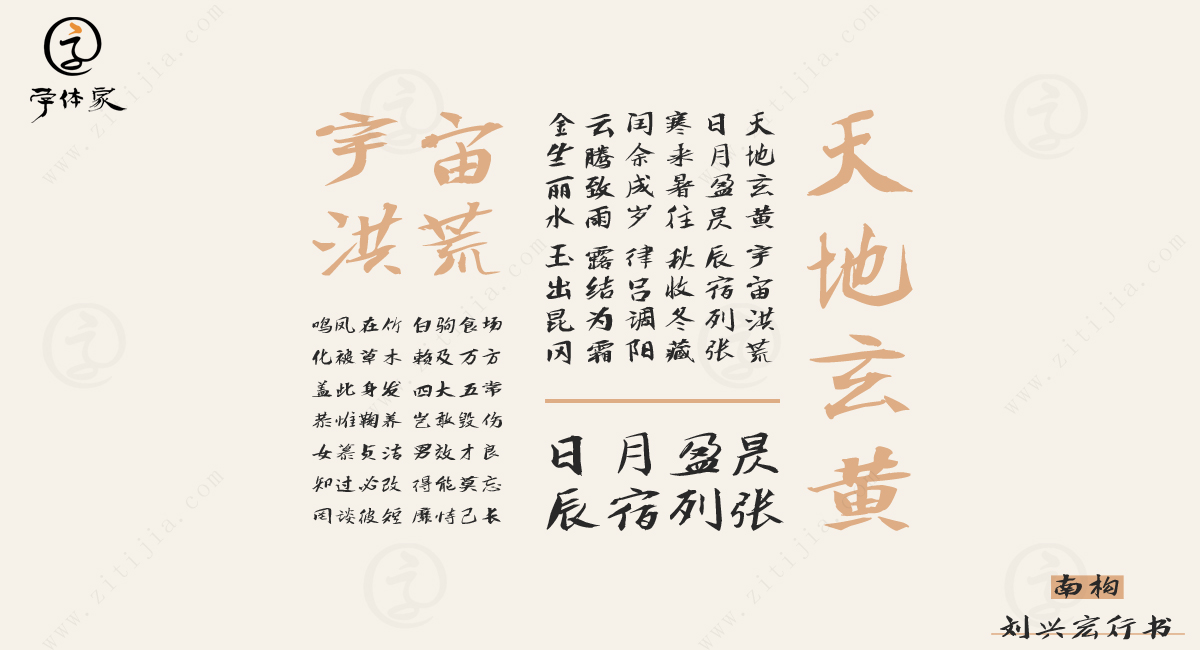 字体家
天地玄黄
天地玄黄 宇宙洪荒
日月盈昃 辰宿列张
寒来暑往 秋收冬藏
闰余成岁 律吕调阳
云腾致雨 露结为霜
金生丽水 玉出昆冈
日月盈昃
辰宿列张
宇宙
洪荒
鸣凤在竹 白驹食场
化被草木 赖及万方
盖此身发 四大五常
恭惟鞠养 岂敢毁伤
女慕贞洁 男效才良
知过必改 得能莫忘
罔谈彼短 靡恃己长
南构
刘兴宏行书
www.zitijia.com